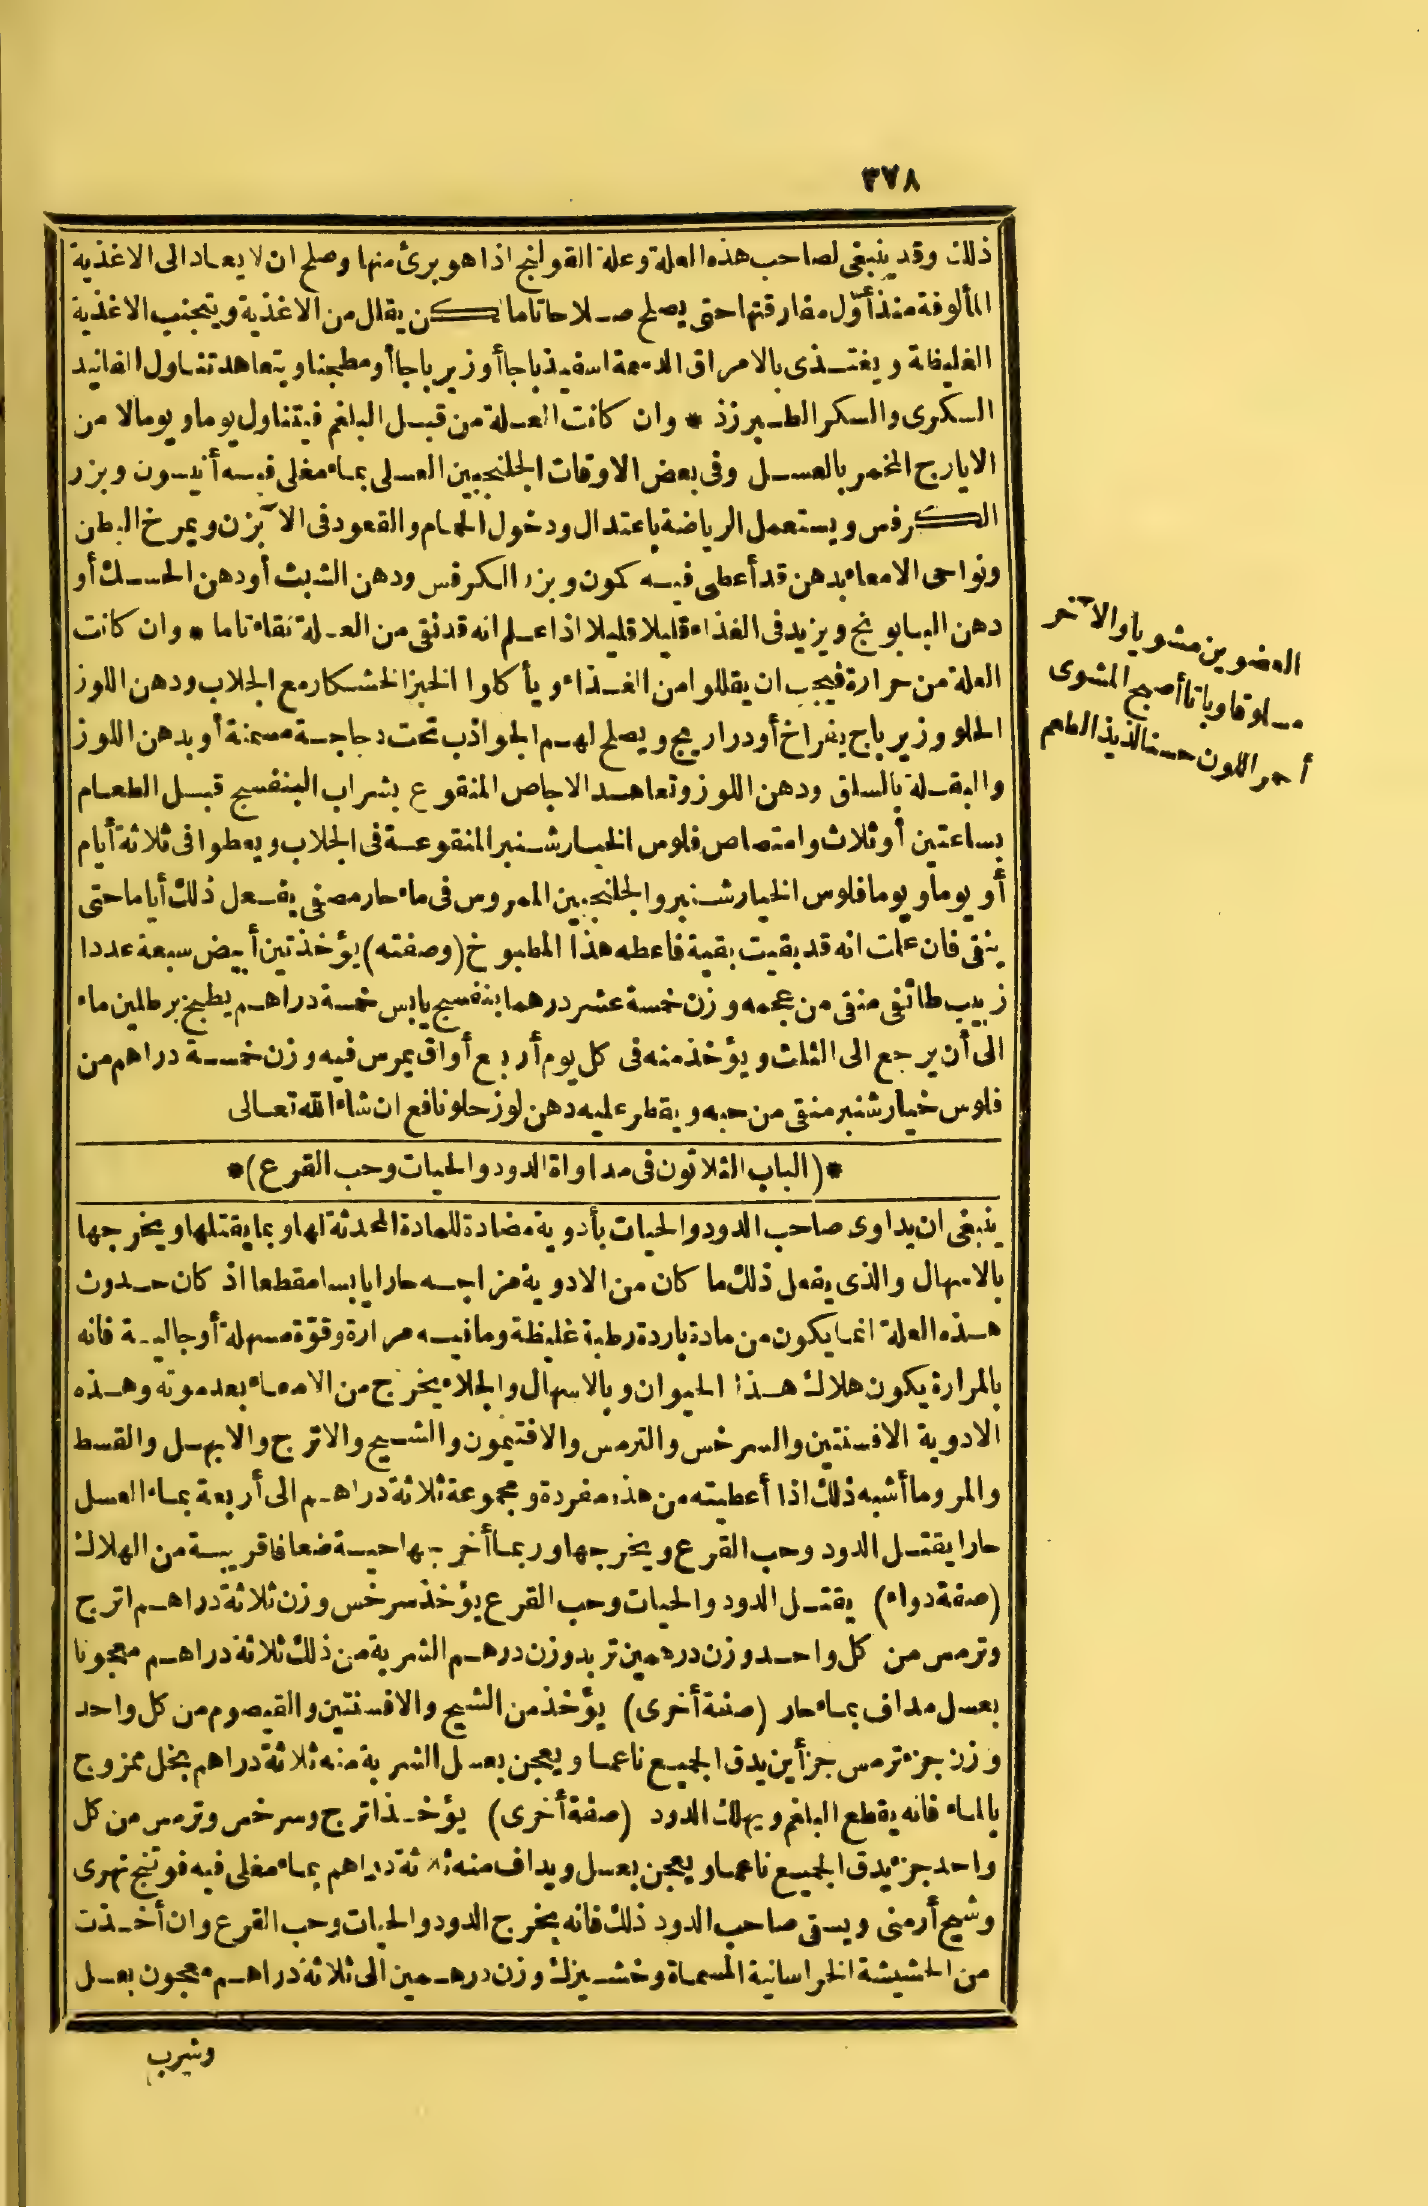 ٣٧٨
ذلك وقد ينبغى لصاحب هذه العلة وعلة القولنج اذا هو برئ منها وصلح ان لا يعاد الى الاغذية
المألوفة منذ أوّل مفارقتها حتى يصلح صلاحا تاما لكن يقال من الاغذية ويتجنب الاغذية
الغليظة ويغتذى بالامراق الدسمة اسفيذباجا أو زيرباجا أو مطجنا ويتعاهد تناول الفانيد
السكرى والسكر الطبرزذ * وان كانت العلة من قبل البلغم فيتناول يوما ويوما لا من
الايارج المخمر بالعسل وفى بعض الاوقات الجلنجبين العسلى بماء مغلى فيه أنيسون وبزر
الكرفس ويستعمل الرياضة باعتدال ودخول الحمام والقعود فى الآبزن ويمرخ البطن
ونواحى الامعاء بدهن قد أعطى فيه كمون وبزر الكرفس ودهن الشبث أو دهن الحسك أو
دهن البابونج ويزيد فى الغذاء قليلا قليلا اذا علم انه قد نقى من العلة نقاء تاما * وان كانت
العلة من حرارة فيجب ان يقللوا من الغذاء ويأكلوا الخبز الخشكار مع الجلاب ودهن اللوز
الحلو وزيرباج بفراخ أو دراريج ويصلح لهم الجواذب تحت دجاجة مسمنة أو بدهن اللوز
والبقلة بالسلق ودهن اللوز وتعاهد الاجاص المنقوع بشراب البنفسج قبل الطعام
بساعتين أو ثلاث وامتصاص فلوس الخيارشنبر المنقوعة فى الجلاب ويعطوا فى ثلاثة أيام
أو يوما ويوما فلوس الخيارشنبر والجلنجبين الممروس فى ماء حار مصفى يفعل ذلك أياما حتى
ينقى فان علمت انه قد بقيت بقية فاعطه هذا المطبوخ (وصفته) يؤخذ تين أبيض سبعة عددا
زبيب طائفى منقى من عجمه وزن خمسة عشر درهما بنفسج يابس خمسة دراهم يطبخ برطلين ماء
الى أن يرجع الى الثلث ويؤخذ منه فى كل يوم أربع أواق يمرس فيه وزن خمسة دراهم من
فلوس خيارشنبر منقى من حبه ويقطر عليه دهن لوز حلو نافع ان شاء الله تعالى
*(الباب الثلاثون فى مداواة الدود والحيات وحب القرع)*
ينبغى ان يداوى صاحب الدود والحيات بأدوية مضادة للمادة المحدثة لها وبما يقتلها ويخرجها
بالاسهال والذى يفعل ذلك ما كان من الادوية مزاجه حارا يابسا مقطعا اذ كان حدوث
هذه العلة انما يكون من مادة باردة رطبة غليظة وما فيه مرارة وقوّة مسهلة أو جالية فانه
بالمرارة يكون هلاك هذا الحيوان وبالاسهال والجلاء يخرج من الامعاء بعد موته وهذه
الادوية الافسنتين والسرخس والترمس والافتيمون والشيح والاترج والابهل والقسط
والمر وما أشبه ذلك اذا أعطيته من هذه مفردة ومجموعة ثلاثة دراهم الى أربعة بماء العسل
حارا يقتل الدود وحب القرع ويخرجها وربما أخرجها حية ضعافا قريبة من الهلاك
(صفة دواء) يقتل الدود والحيات وحب القرع يؤخذ سرخس وزن ثلاثة دراهم اترج
وترمس من كل واحد وزن درهمين تربد وزن درهم الشربة من ذلك ثلاثة دراهم معجونا
بعسل مداف بماء حار (صفة أخرى) يؤخذ من الشيح والافسنتين والقيصوم من كل واحد
وزن جزء ترمس جزأين يدق الجميع ناعما ويعجن بعسل الشربة منه ثلاثة دراهم بخل ممزوج
بالماء فانه يقطع البلغم ويهلك الدود (صفة أخرى) يؤخذ اترج وسرخس وترمس من كل
واحد جزء يدق الجميع ناعما ويعجن بعسل ويداف منه ثلاثة دراهم بماء مغلى فيه فوتنج نهرى
وشيح أرمنى ويسقى صاحب الدود ذلك فانه يخرج الدود والحيات وحب القرع وان أخذت
من الحشيشة الخراسانية المسماة وخشيزك وزن درهمين الى ثلاثة دراهم معجون بعسل
وشرب
العضوين مشويا والآخر
مسلوقا وباتا أصبح المشوى
أحمر اللون حسنا لذيذ الطعم